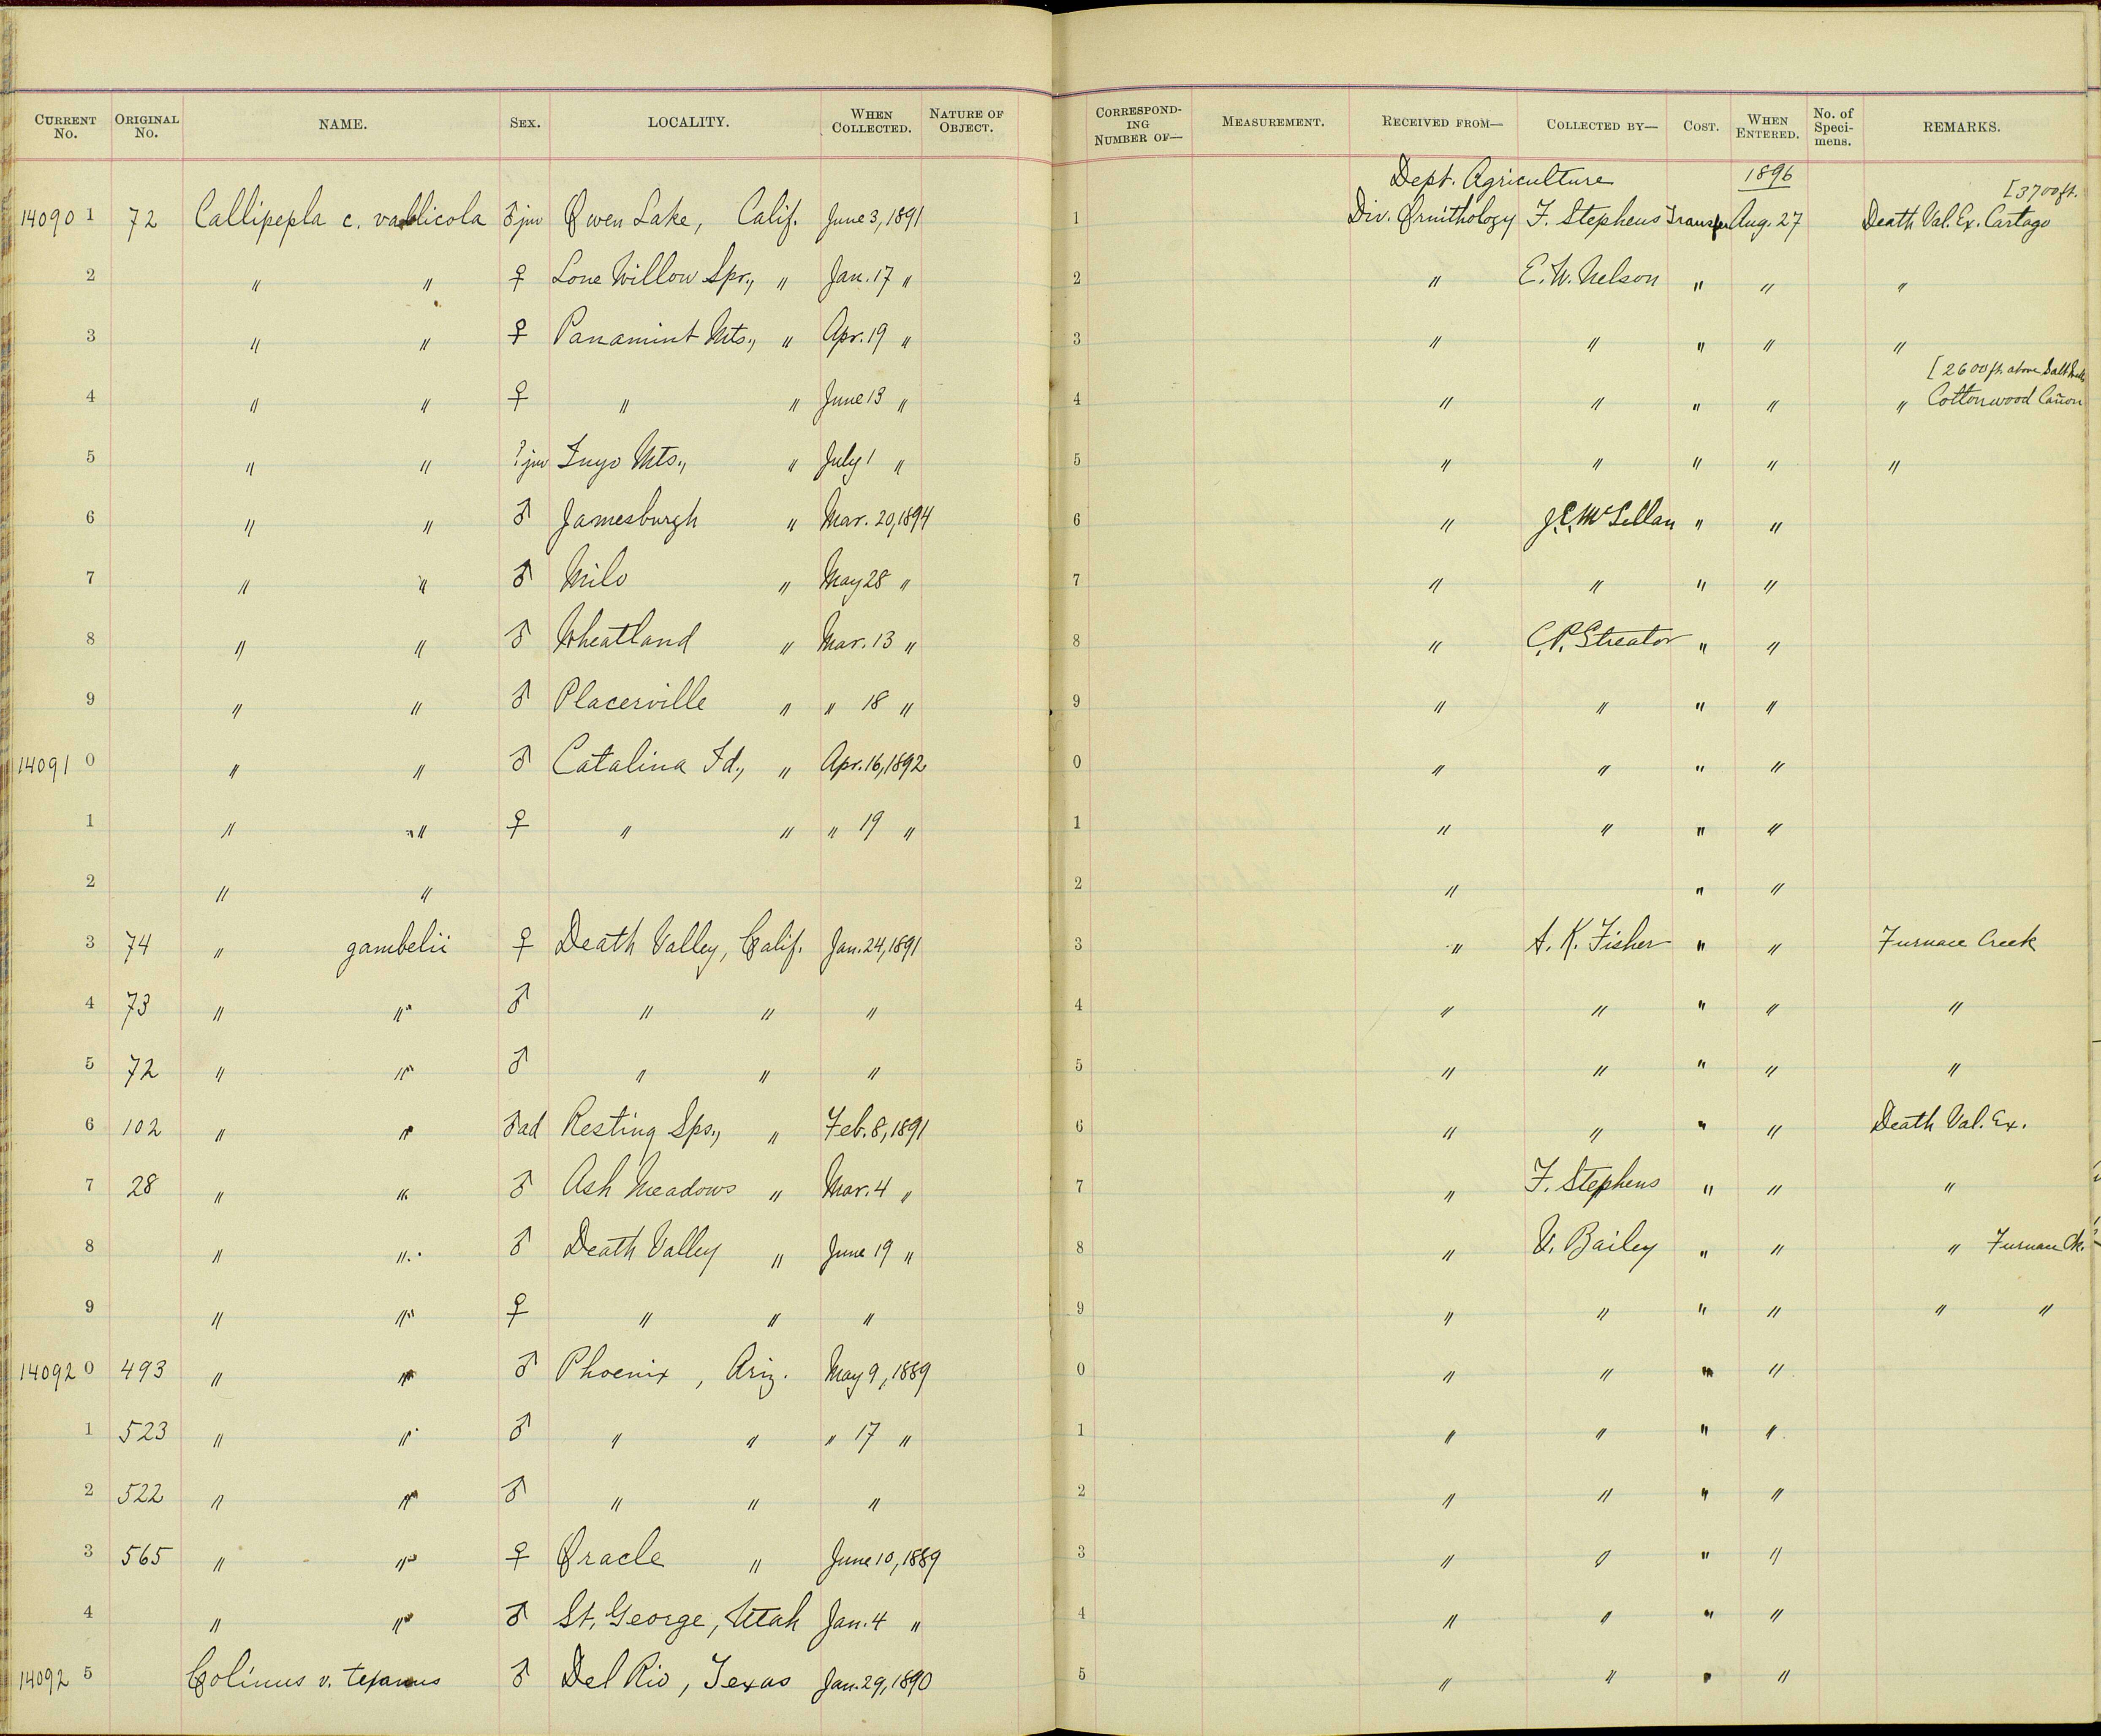 CURRENT No. ORIGINAL No. NAME. SEX. LOCALITY. WHEN COLLECTED. NATURE OF OBJECT. CORRESPONDING NUMBER OF— MEASUREMENT. RECEIVED FROM— COLLECTED BY— COST. WHEN ENTERED. No. of Specimens. REMARKS.
Dept. Agriculture 1896 [3700 ft.
14090 1 72 Callipepla c. vallicola ♂ juv Owen Lake, Calif. June 3, 1891 1 Div. Ornithology F. Stephens Transfer Aug. 27 Death Val. Ex. Cartago
2 " " ♀ Lone Willow Spr., " Jan. 17 " 2 " E. W. Nelson " " "
3 " " ♀ Panamint Mts., " Apr. 19 " 3 " " " " "
[2600 ft. above Salt Wells
4 " " ♀ " " June 13 " 4 " " " " " Cottonwood Cañon
5 " " ? juv Inyo Mts., " July 1 " 5 " " " " "
6 " " ♂ Jamesburgh " Mar. 20, 1894 6 " J. E. McLellan " "
7 " " ♂ Milo " May 28 " 7 " " " "
8 " " ♂ Wheatland " Mar. 13 " 8 " C. P. Streator " "
9 " " ♂ Placerville " " 18 " 9 " " " "
14091 0 " " ♂ Catalina Id., " Apr. 16, 1892 0 " " " "
1 " " ♀ " " " 19 " 1 " " " "
2 " " 2 " " "
3 74 " gambelii ♀ Death Valley, Calif. Jan. 24, 1891 3 " A. K. Fisher " " Furnace Creek
4 73 " " ♂ " " " 4 " " " " "
5 72 " " ♂ " " " 5 " " " " "
6 102 " " ♂ ad Resting Sps., " Feb. 8, 1891 6 " " " " Death Val. Ex.
7 28 " " ♂ Ash Meadows " Mar. 4 " 7 " F. Stephens " " "
8 " " ♂ Death Valley " June 19 " 8 " V. Bailey " " " Furnace Ck.
9 " " ♀ " " " 9 " " " " " "
14092 0 493 " " ♂ Phoenix, Ariz. May 9, 1889 0 " " " "
1 523 " " ♂ " " " 17 " 1 " " " "
2 522 " " ♂ " " " 2 " " " "
3 565 " " ♀ Oracle " June 10, 1889 3 " " " "
4 " " ♂ St. George, Utah Jan. 4 " 4 " " " "
14092 5 Colinus v. texanus ♂ Del Rio, Texas Jan. 29, 1890 5 " " " "